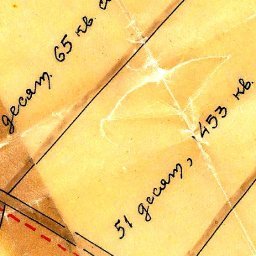 десят. 65 кв. с
51 десят, 1453 кв.